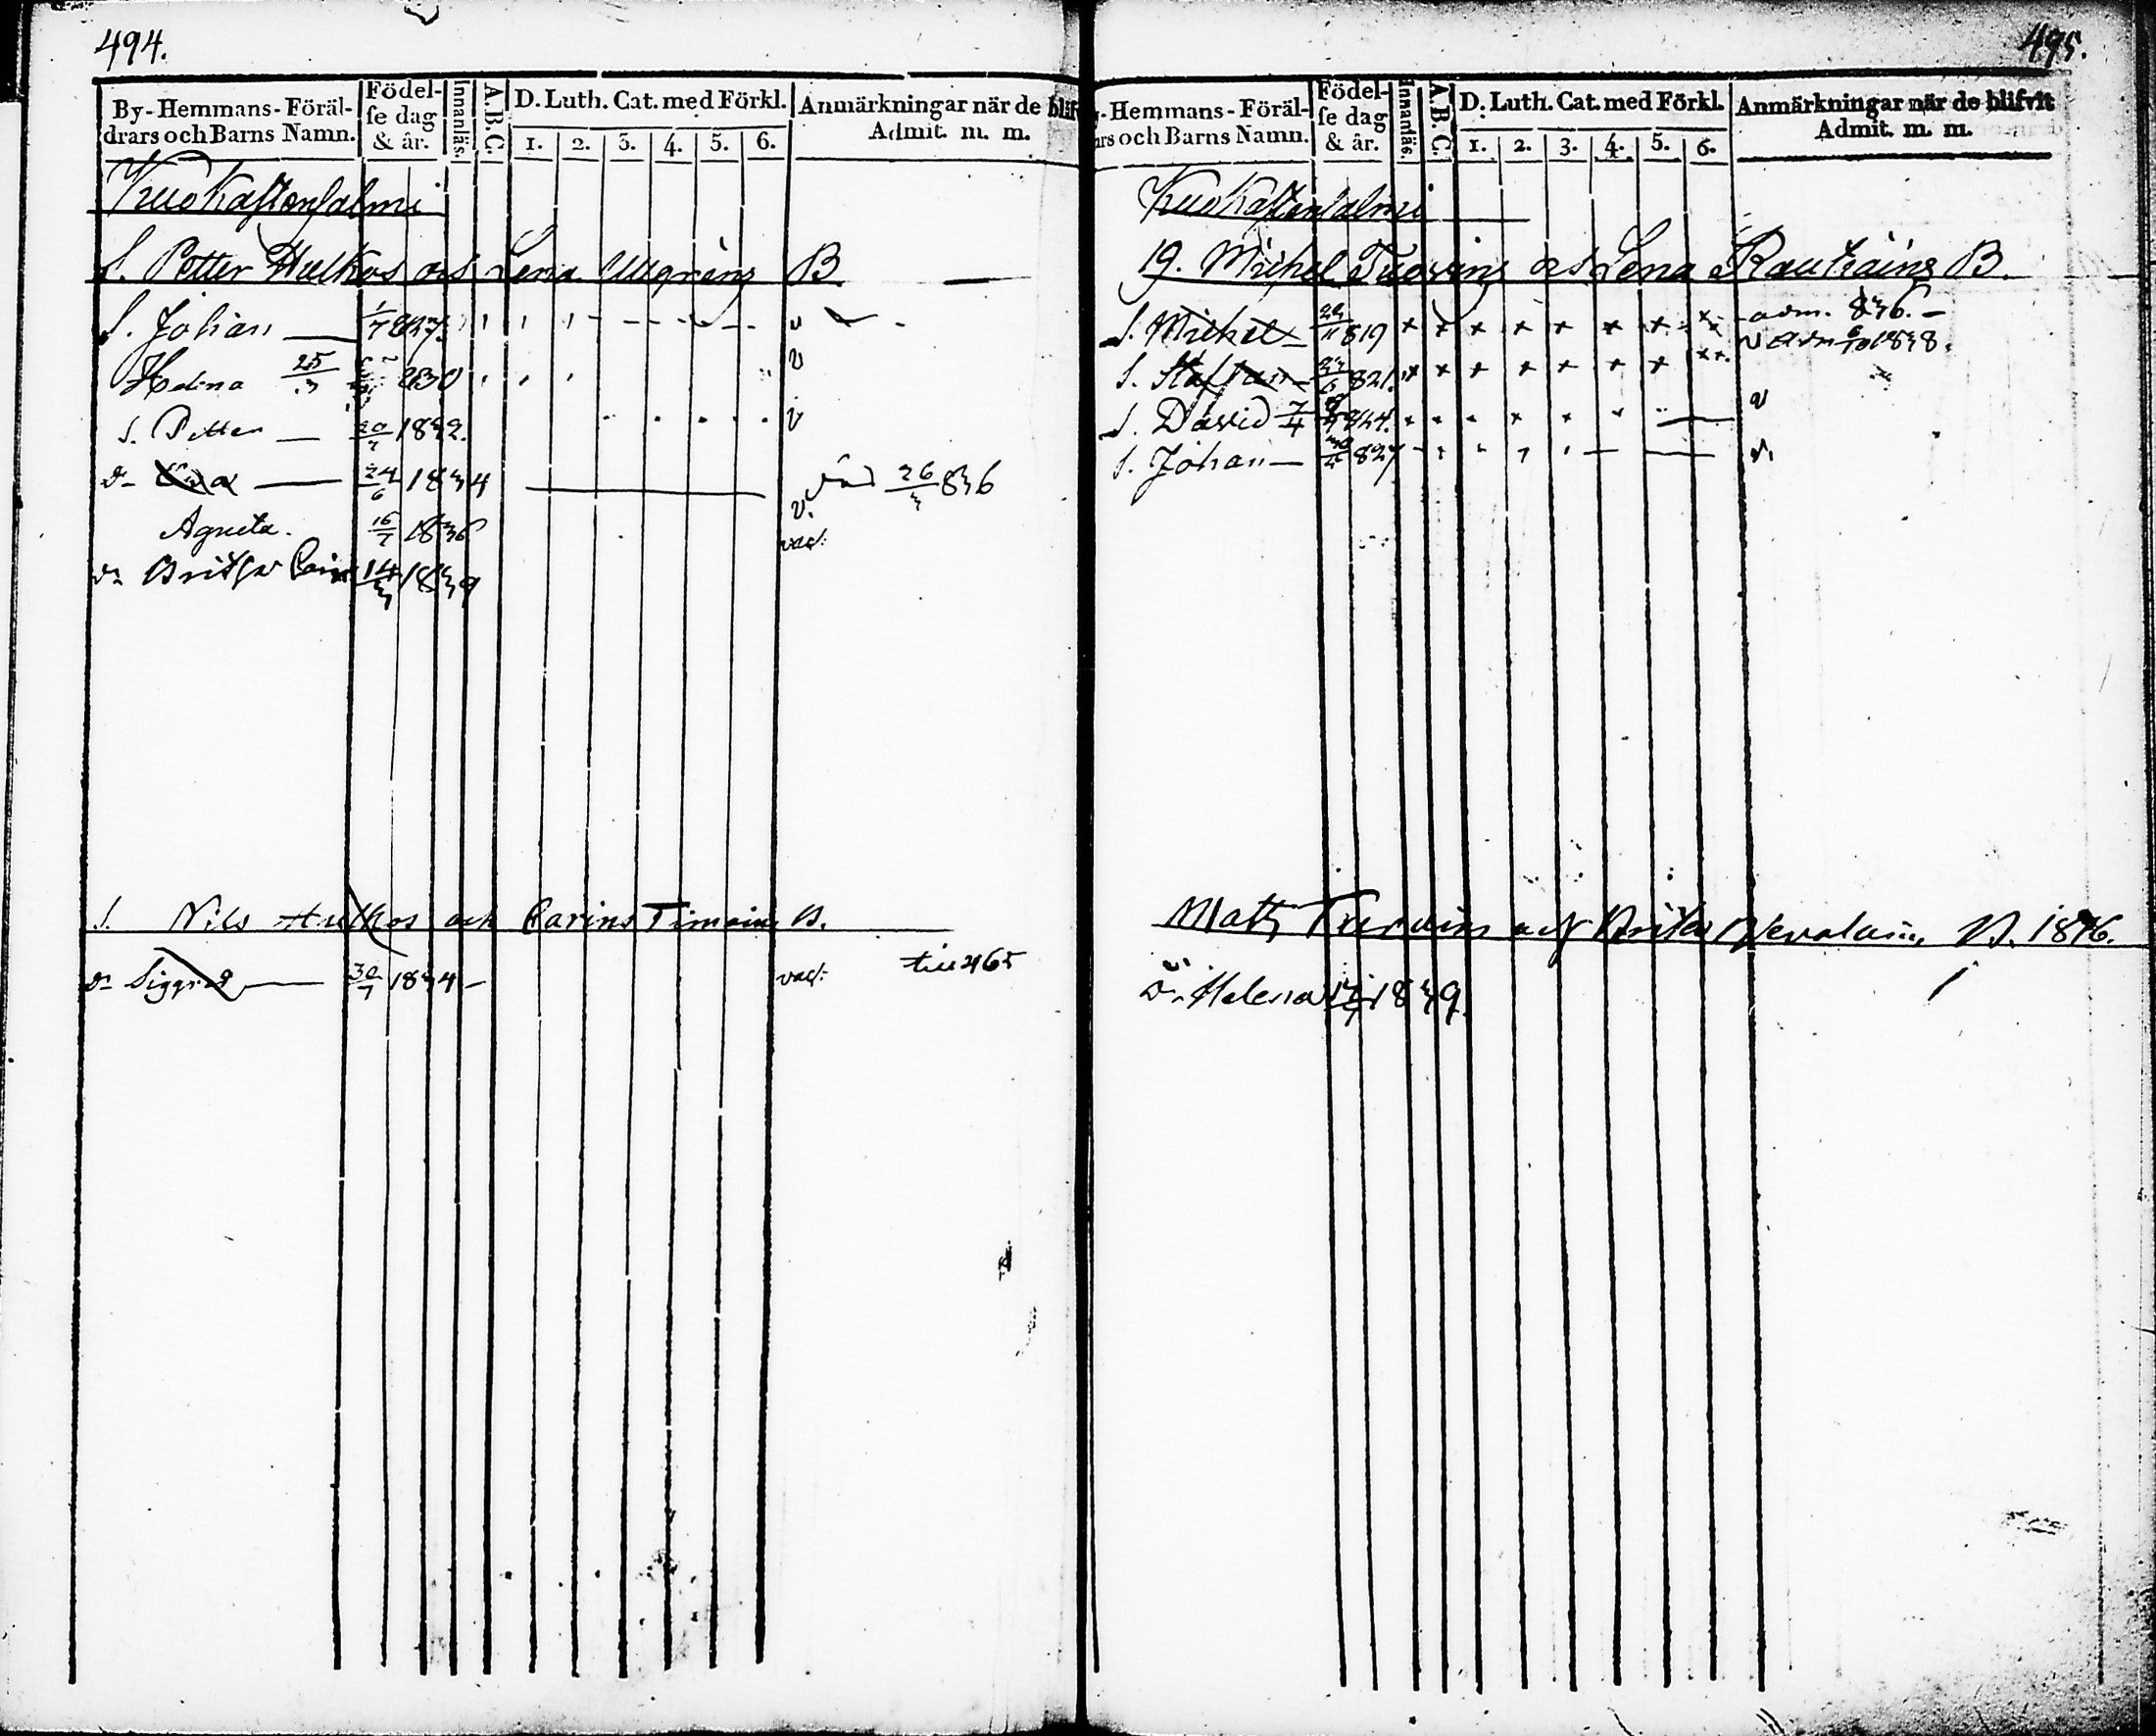 494.
By-Hemmans-Föräl-
drars och Barns Namn.
Födel-
se dag
& år.
Innanläs.
A.B.C.
D. Luth. Cat. med Förkl.
1. 2. 3. 4. 5. 6.
Anmärkningar när de blif
Admit. m. m.
Kuokastensalmi
S. Petter Hulkos och Lena B
S. Johan 1/7 827. v
Helena 25/3 830 v
S. Petter 20/7 1832. v
Dr Eva 24/6 1834 död 26/3 836
v.
Agneta. 16/7 1836 vac:
Dr Britha Carin 14/3 1839
S. Nils Hulkos och Carin Timoin B.
Dr Siggrid 30/7 1834 vac: till 465
495.
-Hemmans-Föräl-
rs och Barns Namn.
Födel-
se dag
& år.
Innanläs.
A.B.C.
D. Luth. Cat. med Förkl.
1. 2. 3. 4. 5. 6.
Anmärkningar när de blifvit
Admit. m. m.
Kuokastensalmi
19. Michel Tuoving och Lena Rautiains B.
S. Michel 22/11 819 adm. 836.
S. Staffan 821. v adm 1838.
S. David 7/4 824. v
S. Johan 827 v.
Matts Tuovin och Britha B. 1836.
Dr Helena 1839.